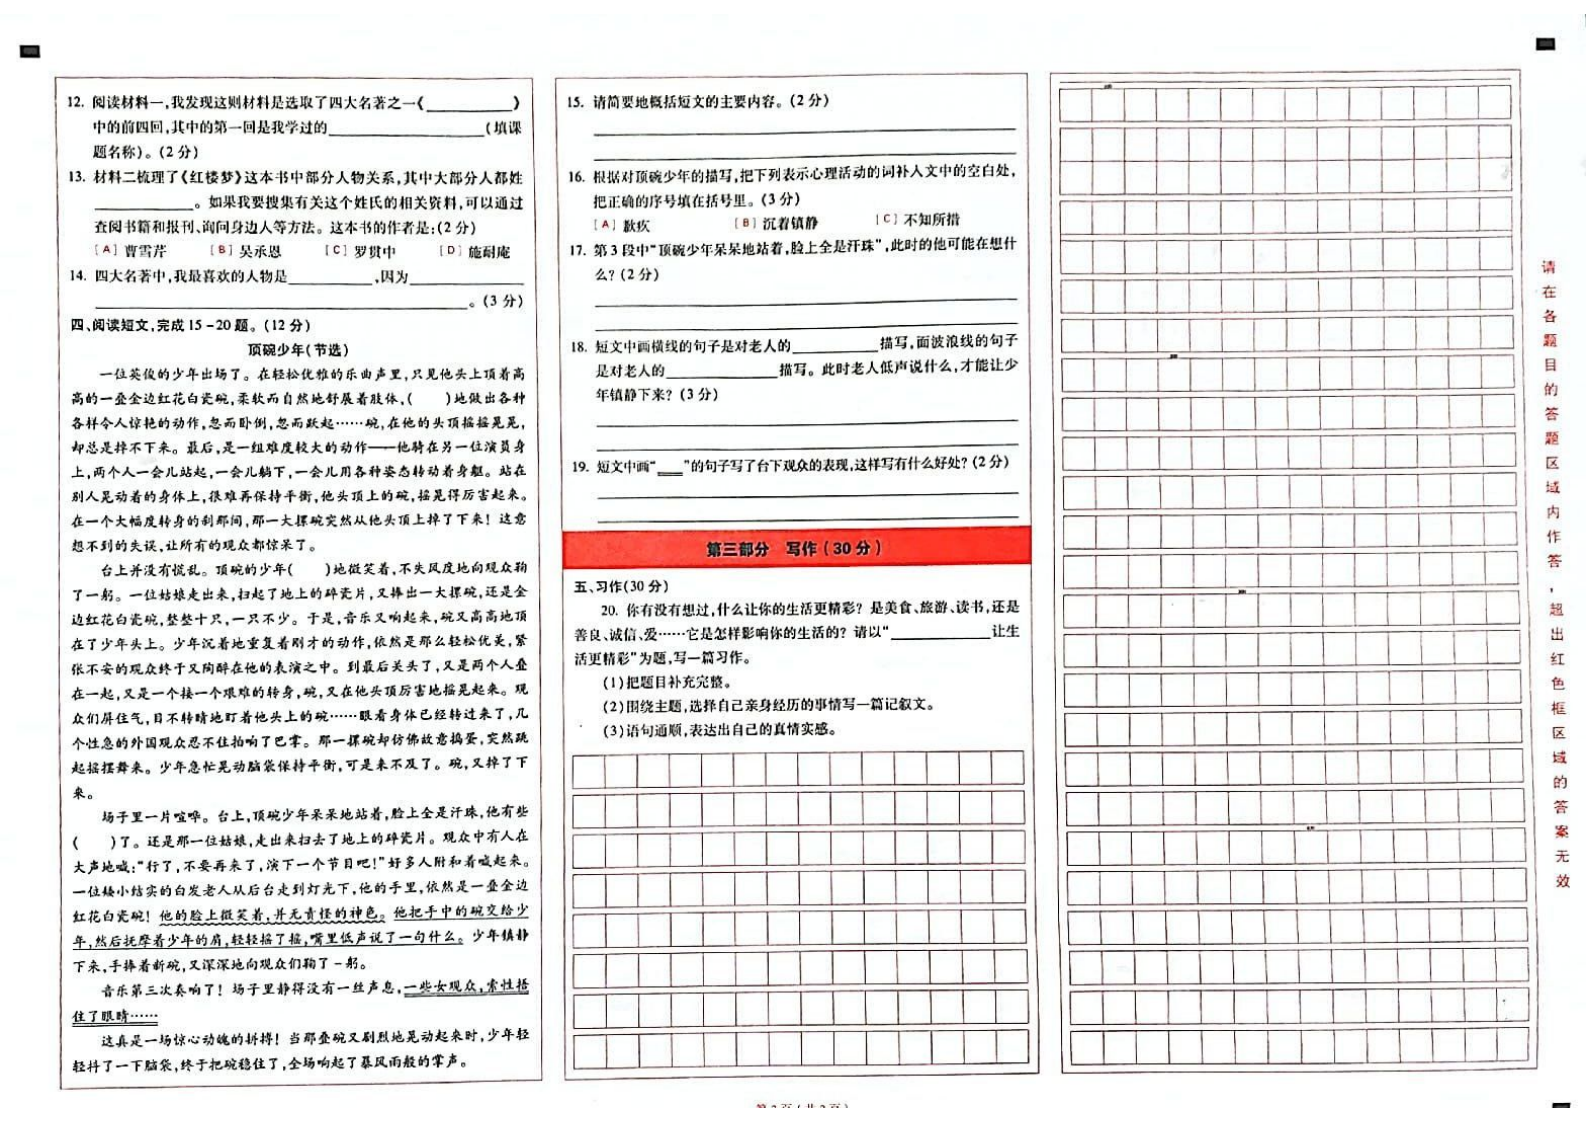 12. 阅读材料一,我发现这则材料是选取了四大名著之一《____________》
中的前四回,其中的第一回是我学过的____________________(填课
题名称)。(2 分)
13. 材料二梳理了《红楼梦》这本书中部分人物关系,其中大部分人都姓
____________。如果我要搜集有关这个姓氏的相关资料,可以通过
查阅书籍和报刊、询问身边人等方法。这本书的作者是:(2 分)
[A] 曹雪芹 [B] 吴承恩 [C] 罗贯中 [D] 施耐庵
14. 四大名著中,我最喜欢的人物是__________,因为______________
________________________________________________。(3 分)
四、阅读短文,完成 15-20 题。(12 分)
顶碗少年(节选)
一位英俊的少年出场了。在轻松优雅的乐曲声里,只见他头上顶着高
高的一叠金边红花白瓷碗,柔软而自然地舒展着肢体,( )地做出各种
各样令人惊艳的动作,忽而卧倒,忽而跃起……碗,在他的头顶摇摇晃晃,
却总是掉不下来。最后,是一组难度较大的动作——他骑在另一位演员身
上,两个人一会儿站起,一会儿躺下,一会儿用各种姿态转动着身躯。站在
别人晃动着的身体上,很难再保持平衡,他头顶上的碗,摇晃得厉害起来。
在一个大幅度转身的刹那间,那一大摞碗突然从他头顶上掉了下来!这意
想不到的失误,让所有的观众都惊呆了。
台上并没有慌乱。顶碗的少年( )地微笑着,不失风度地向观众鞠
了一躬。一位姑娘走出来,扫起了地上的碎瓷片,又捧出一大摞碗,还是金
边红花白瓷碗,整整十只,一只不少。于是,音乐又响起来,碗又高高地顶
在了少年头上。少年沉着地重复着刚才的动作,依然是那么轻松优美,紧
张不安的观众终于又陶醉在他的表演之中。到最后关头了,又是两个人叠
在一起,又是一个接一个艰难的转身,碗,又在他头顶厉害地摇晃起来。观
众们屏住气,目不转睛地盯着他头上的碗……眼看身体已经转过来了,几
个性急的外国观众忍不住拍响了巴掌。那一摞碗却仿佛故意捣蛋,突然跳
起摇摆舞来。少年急忙晃动脑袋保持平衡,可是来不及了。碗,又掉了下
来。
场子里一片喧哗。台上,顶碗少年呆呆地站着,脸上全是汗珠,他有些
( )了。还是那一位姑娘,走出来扫去了地上的碎瓷片。观众中有人在
大声地喊:“行了,不要再来了,演下一个节目吧!”好多人附和着喊起来。
一位矮小结实的白发老人从后台走到灯光下,他的手里,依然是一叠金边
红花白瓷碗!他的脸上微笑着,并无责怪的神色。他把手中的碗交给少
年,然后抚摩着少年的肩,轻轻摇了摇,嘴里低声说了一句什么。少年镇静
下来,手捧着新碗,又深深地向观众们鞠了一躬。
音乐第三次奏响了!场子里静得没有一丝声息,一些女观众,索性捂
住了眼睛……
这真是一场惊心动魄的拼搏!当那叠碗又剧烈地晃动起来时,少年轻
轻抖了一下脑袋,终于把碗稳住了,全场响起了暴风雨般的掌声。
15. 请简要地概括短文的主要内容。(2 分)
16. 根据对顶碗少年的描写,把下列表示心理活动的词补入文中的空白处,
把正确的序号填在括号里。(3 分)
[A] 歉疚 [B] 沉着镇静 [C] 不知所措
17. 第 3 段中“顶碗少年呆呆地站着,脸上全是汗珠”,此时的他可能在想什
么?(2 分)
18. 短文中画横线的句子是对老人的__________描写,画波浪线的句子
是对老人的______________描写。此时老人低声说什么,才能让少
年镇静下来?(3 分)
19. 短文中画“____”的句子写了台下观众的表现,这样写有什么好处?(2 分)
第三部分 写作(30 分)
五、习作(30 分)
20. 你有没有想过,什么让你的生活更精彩?是美食、旅游、读书,还是
善良、诚信、爱……它是怎样影响你的生活的?请以“____________让生
活更精彩”为题,写一篇习作。
(1)把题目补充完整。
(2)围绕主题,选择自己亲身经历的事情写一篇记叙文。
(3)语句通顺,表达出自己的真情实感。
请在各题目的答题区域内作答,超出红色框区域的答案无效